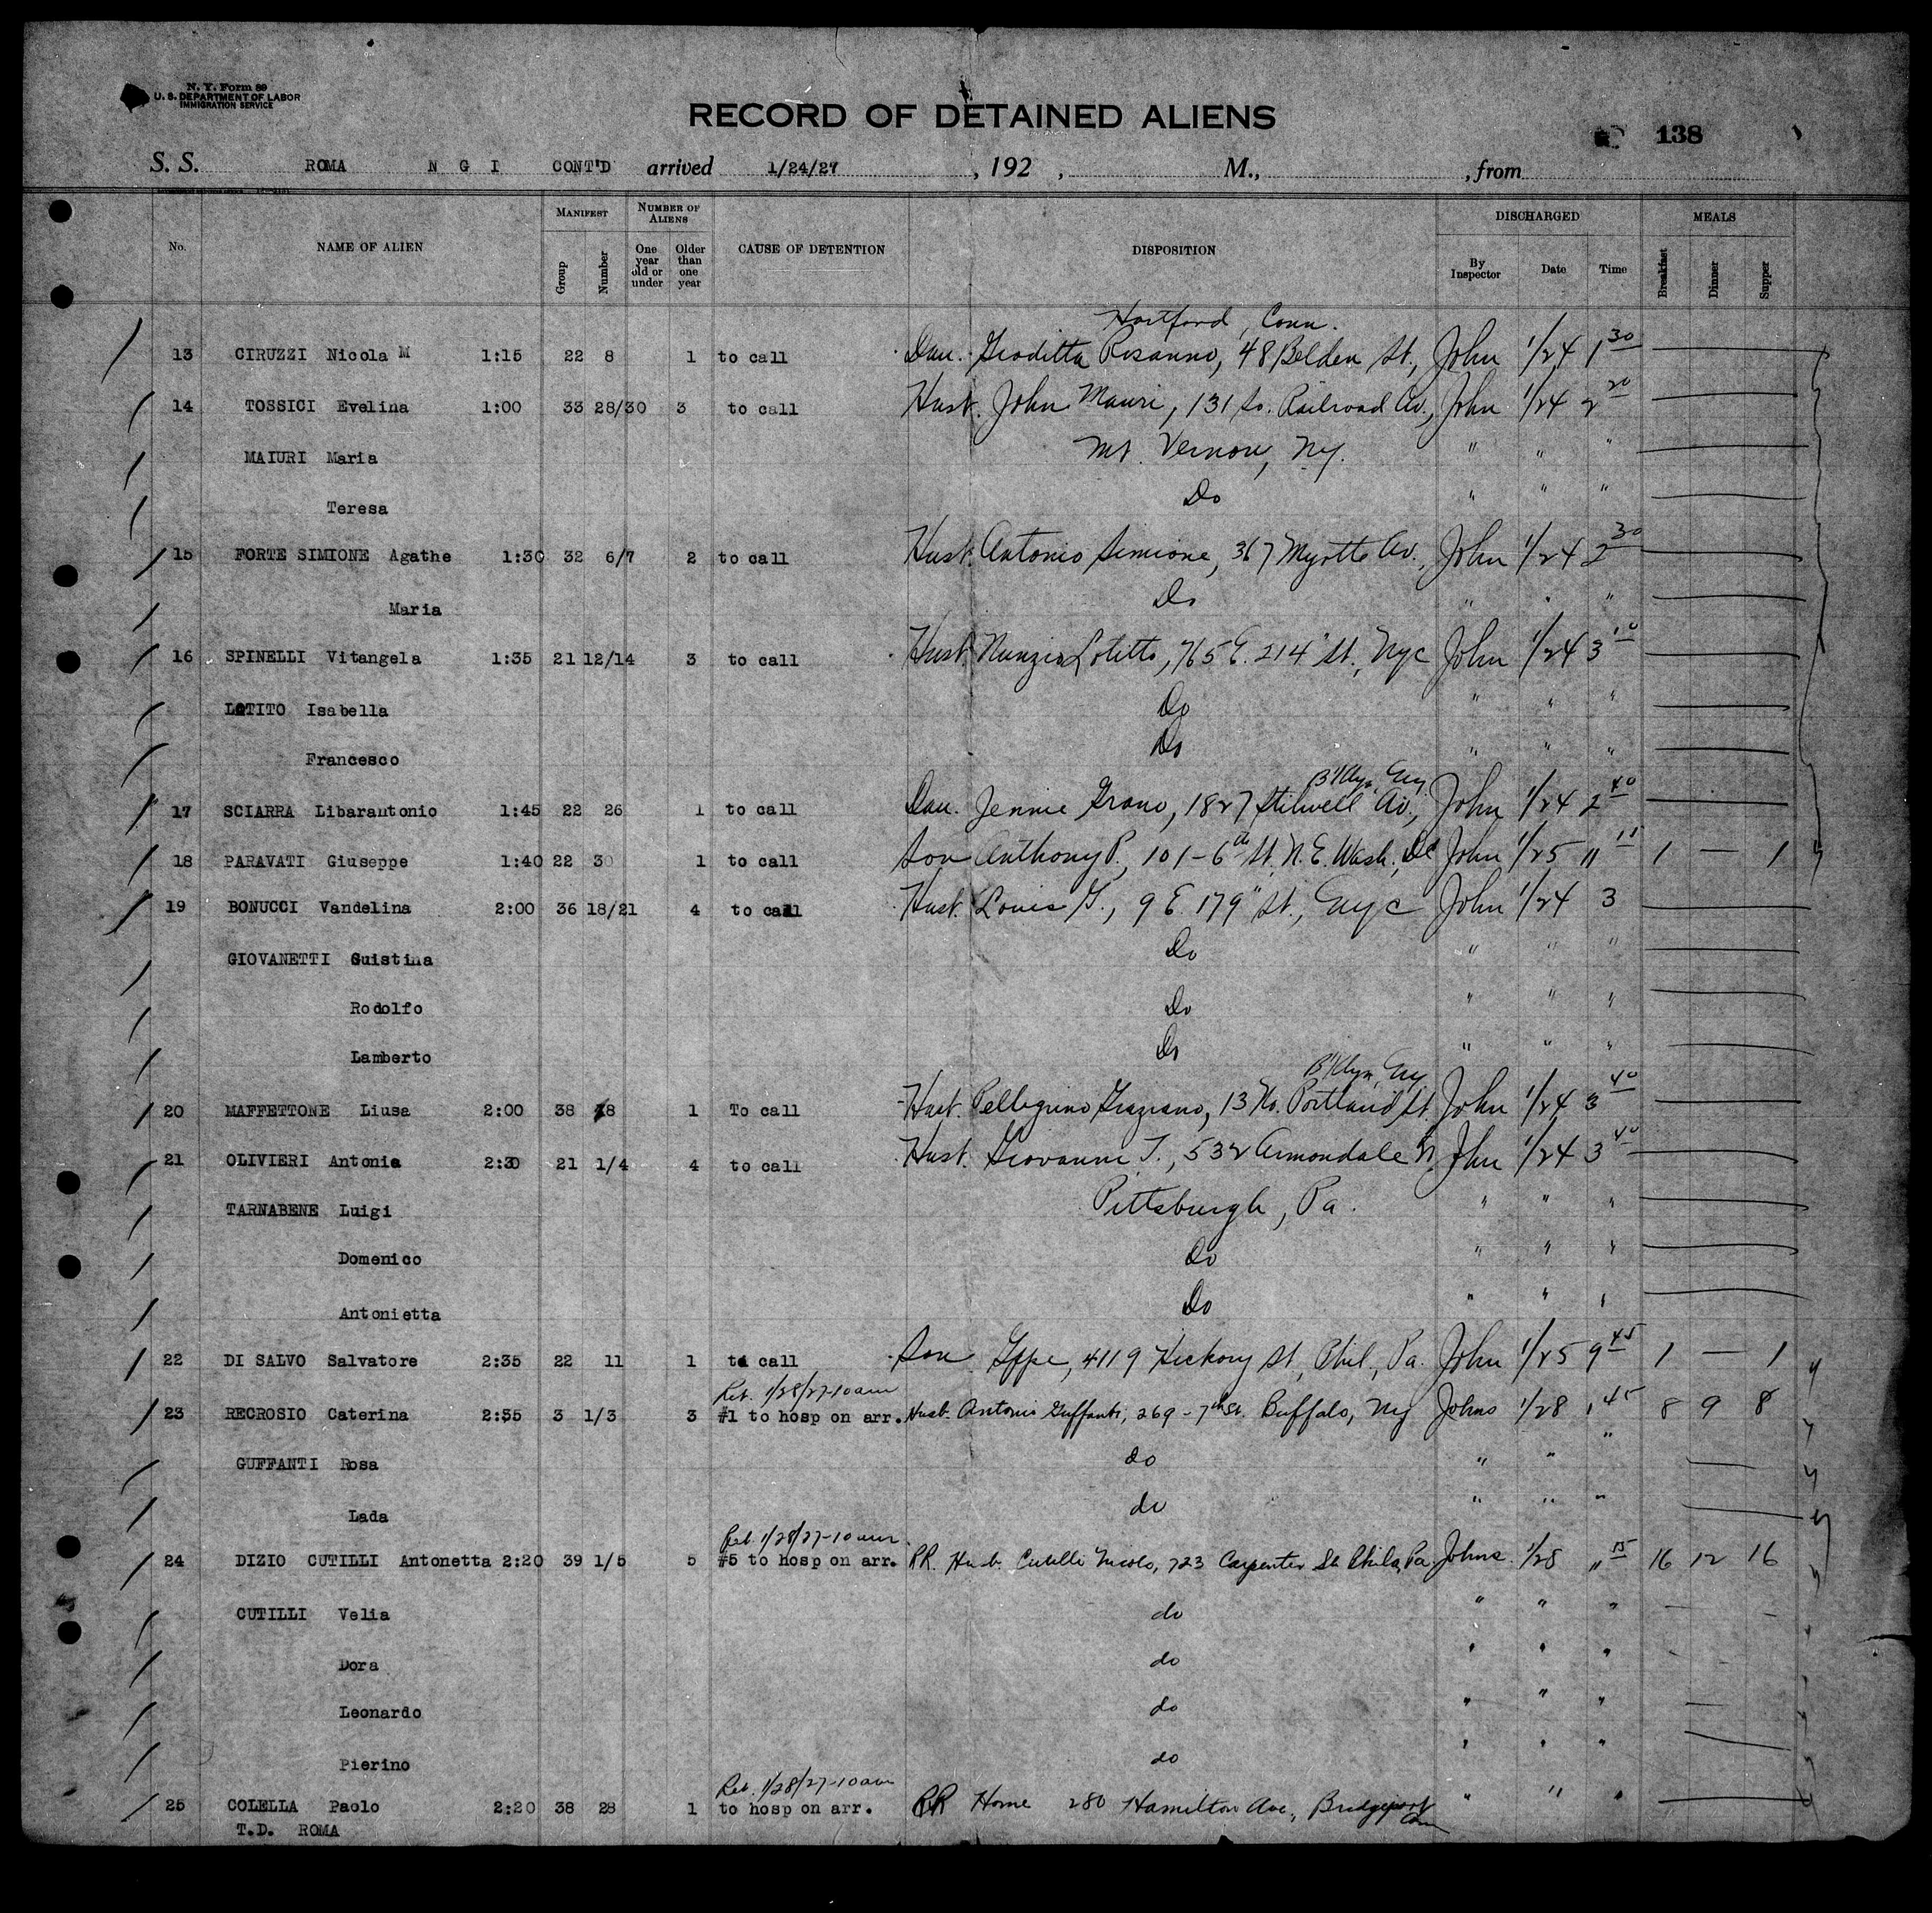 N. Y. Form 89
U. S. DEPARTMENT OF LABOR
IMMIGRATION SERVICE
RECORD OF DETAINED ALIENS
138
S. S. ROMA N G I CONT'D arrived 1/24/27 , 192 , M., , from
No. NAME OF ALIEN MANIFEST NUMBER OF ALIENS CAUSE OF DETENTION DISPOSITION DISCHARGED MEALS
Group Number One year old or under Older than one year By Inspector Date Time Breakfast Dinner Supper
Hartford, Conn.
13 CIRUZZI Nicola M 1:15 22 8 1 to call Dau. Rosanno, 48 Belden St., John 1/24 1 30
14 TOSSICI Evelina 1:00 33 28/30 3 to call Husb. John Mauri, 131 So. Railroad Av., John 1/24 2 20
MAIURI Maria Mt. Vernon, Ny. " " "
Teresa Do " " "
15 FORTE SIMIONE Agathe 1:30 32 6/7 2 to call Husb. Antonio Simione, 367 Myrtle Av., John 1/24 2 30
Maria Do " " "
16 SPINELLI Vitangela 1:35 21 12/14 3 to call Husb. Nunzio Lotitto, 765 E. 214" St., Nyc John 1/24 3 10
LOTITO Isabella Do " " "
Francesco Do " " "
B'klyn, Ny
17 SCIARRA Libarantonio 1:45 22 26 1 to call Dau. Jennie Grano, 1827 Stilwell Av., John 1/24 2 40
18 PARAVATI Giuseppe 1:40 22 30 1 to call Son Anthony P., 101-6th St. N.E. Wash., DC John 1/25 11 15 1 — 1
19 BONUCCI Vandelina 2:00 36 18/21 4 to call Husb. Louis G., 9 E. 179" St., Nyc John 1/24 3
GIOVANETTI Guistina Do " " "
Rodolfo Do " " "
Lamberto Do " " "
B'klyn, Ny
20 MAFFETTONE Liusa 2:00 38 28 1 To call Husb. Pellegrino Graziano, 13 No. Portland St. John 1/24 3 40
21 OLIVIERI Antonia 2:30 21 1/4 4 to call Husb. Giovanni T., 532 Armondale St. John 1/24 3 40
TARNABENE Luigi Pittsburgh, Pa. " " "
Domenico Do " " "
Antonietta Do " " "
22 DI SALVO Salvatore 2:35 22 11 1 to call Son Gppe, 4119 Hickory St, Phil., Pa. John 1/25 9 45 1 — 1
Ret. 1/28/27-10am
23 RECROSIO Caterina 2:35 3 1/3 3 #1 to hosp on arr. Husb. Antonio Guffanti, 269 - 7th St. Buffalo, Ny Johns 1/28 1 45 8 9 8
GUFFANTI Rosa do " " "
Lada do " " "
Ret. 1/28/27-10am
24 DIZIO CUTILLI Antonetta 2:20 39 1/5 5 #5 to hosp on arr. RR. Husb. Cutilli Nicolo, 723 Carpenter St. Phila, Pa. Johns 1/28 11 15 16 12 16
CUTILLI Velia do " " "
Dora do " " "
Leonardo do " " "
Pierino do " " "
Ret. 1/28/27-10am
25 COLELLA Paolo 2:20 38 28 1 to hosp on arr. RR Home 280 Hamilton Ave., Bridgeport Conn " " "
T.D. ROMA